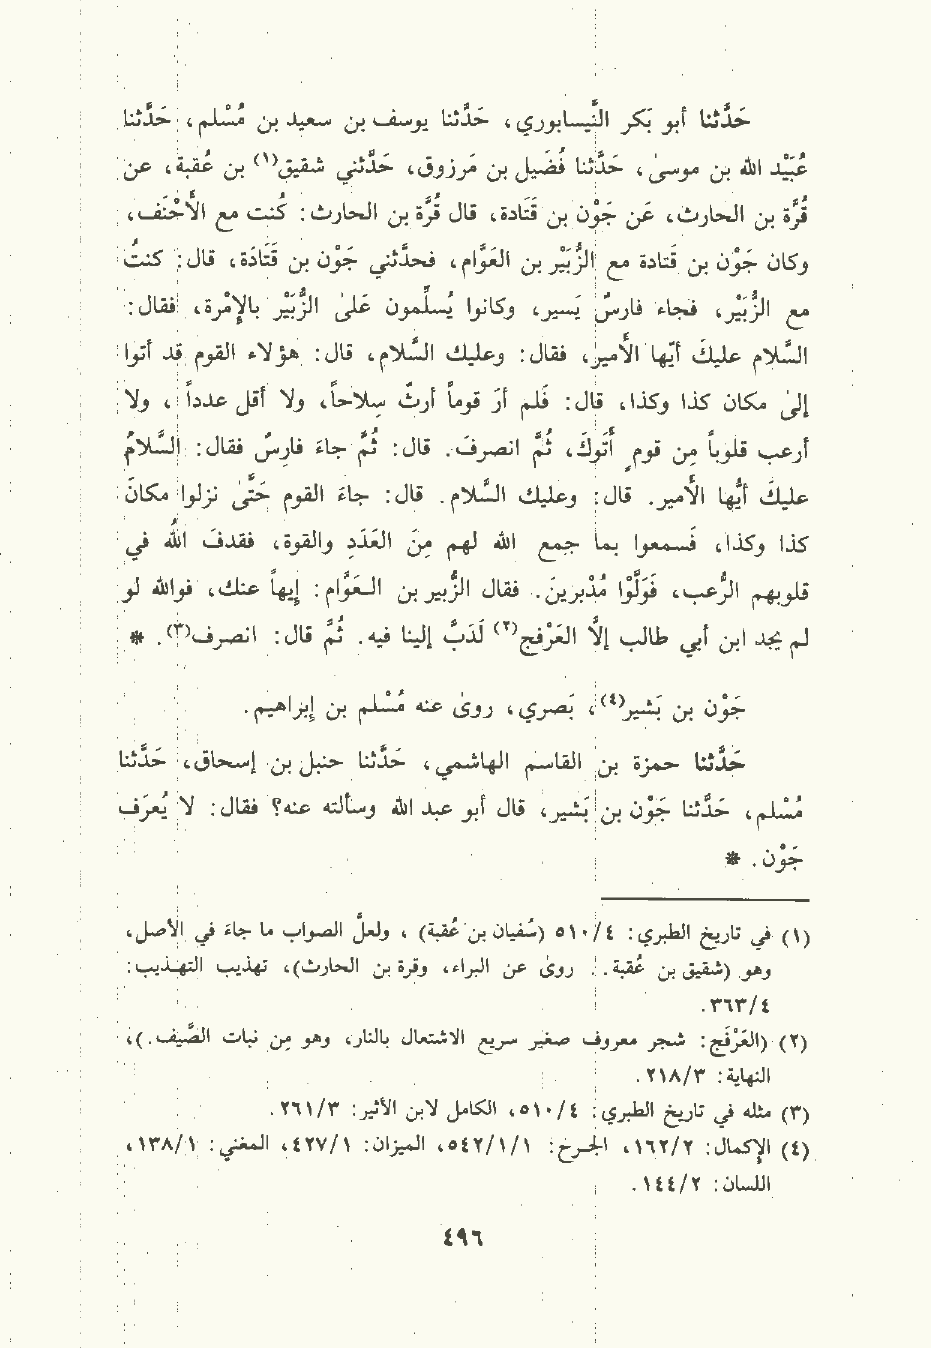 حَدَّثنا أبو بَكر النَّيسابوري، حَدَّثنا يوسف بن سعيد بن مُسْلم، حَدَّثنا
عُبَيْد الله بن موسىٰ، حَدَّثنا فُضَيل بن مَرزوق، حَدَّثني شقيق(١) بن عُقبة، عن
قُرَّة بن الحارث، عَن جَوْن بن قَتَادة، قال قُرَّة بن الحارث: كُنت مع الأَحْنَف،
وكان جَوْن بن قَتادة مع الزُّبَيْر بن العَوَّام، فحدَّثني جَوْن بن قَتَادَة، قال: كنتُ
مع الزُّبَيْر، فجاء فارسٌ يَسير، وكانوا يُسلِّمون عَلىٰ الزُّبَيْر بالإِمْرة، فقال:
السَّلام عليكَ أيّها الأَمير، فقال: وعليك السَّلام، قال: هؤلاء القوم قد أتوا
إلىٰ مكان كذا وكذا، قال: فَلم أرَ قوماً أرثّ سِلاحاً، ولا أقل عدداً، ولا
أرعب قلوباً مِن قومٍ أَتَوكَ، ثُمَّ انصرفَ. قال: ثُمَّ جاءَ فارسٌ فقال: السَّلامُ
عليكَ أيُّها الأمير. قال: وعليك السَّلام. قال: جاءَ القوم حَتَّىٰ نزلوا مكانَ
كذا وكذا، فَسمعوا بما جمع الله لهم مِنَ العَدَدِ والقوة، فقدفَ اللهُ في
قلوبهم الرُّعب، فَوَلَّوْا مُدْبرينَ. فقال الزُّبير بن العَوَّام: إيهاً عنك، فوالله لو
لم يجد ابن أبي طالب إلَّا العَرْفج(٢) لَدَبَّ إلينا فيه. ثُمَّ قال: انصرف(٣). *
جَوْن بن بَشير(٤)، بَصري، روىٰ عنه مُسْلم بن إبراهيم.
حَدَّثنا حمزة بن القاسم الهاشمي، حَدَّثنا حنبل بن إسحاق، حَدَّثنا
مُسْلم، حَدَّثنا جَوْن بن بَشير، قال أبو عبد الله وسألته عنه؟ فقال: لا يُعرَف
جَوْن. *
(١) في تاريخ الطبري: ٥١٠/٤ (سُفيان بن عُقبة) ، ولعلَّ الصواب ما جاءَ في الأصل،
وهو (شقيق بن عُقبة. . روىٰ عن البراء، وقرة بن الحارث)، تهذيب التهـذيب:
٣٦٣/٤.
(٢) (العَرْفَج: شجر معروف صغير سريع الاشتعال بالنار، وهو مِن نبات الصَّيف.)،
النهاية: ٢١٨/٣.
(٣) مثله في تاريخ الطبري: ٥١٠/٤، الكامل لابن الأثير: ٢٦١/٣.
(٤) الإكمال: ١٦٢/٢، الجـرح: ٥٤٢/١/١، الميزان: ٤٢٧/١، المغني: ١٣٨/١،
اللسان: ١٤٤/٢.
٤٩٦